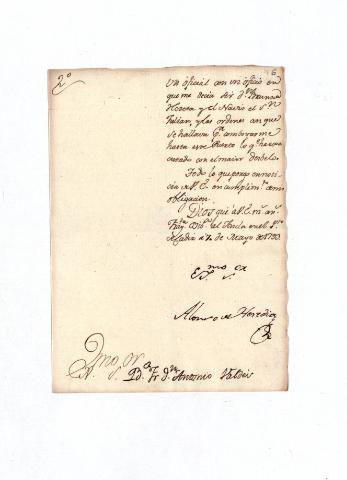 2º
Un oficial con un oficio en
que me decia ser Dn
Horena y el Navio el Sn
Julian, y las ordenes con que
se hallava Pa comboyarme
hasta este Puerto lo q. ha exe
cutado con el maior desvelo.
Todo lo que pongo en noti
cia de V. E. en cumplimto de mi
obligacion.
Dios gue a V. E. ms as
al Ancla en el Pto
de Cadiz a 2 de Mayo de 1790.
Exmo Sor
Alonso de Heredia
Exmo Sor
Bo Fr. Dn Antonio Valdes